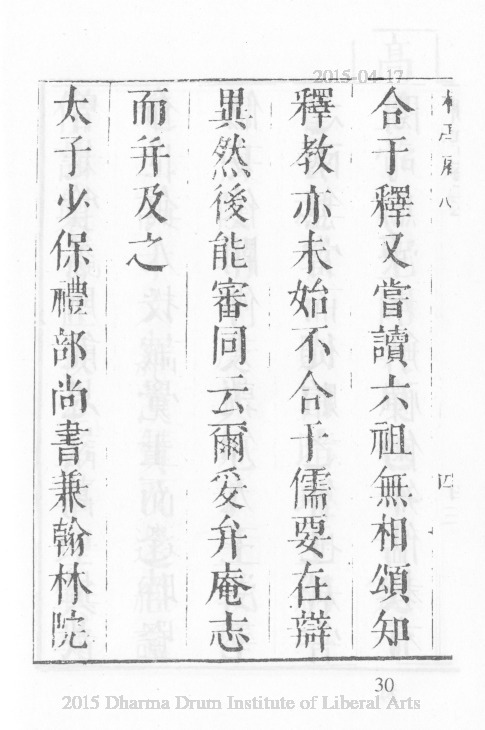 2015-04-17
合于釋又嘗讀六祖無相頌知
釋教亦未始不合于儒要在辯
異然後能審同云爾爰弁庵志
而并及之
太子少保禮部尚書兼翰林院
四
30
2015 Dharma Drum Institute of Liberal Arts